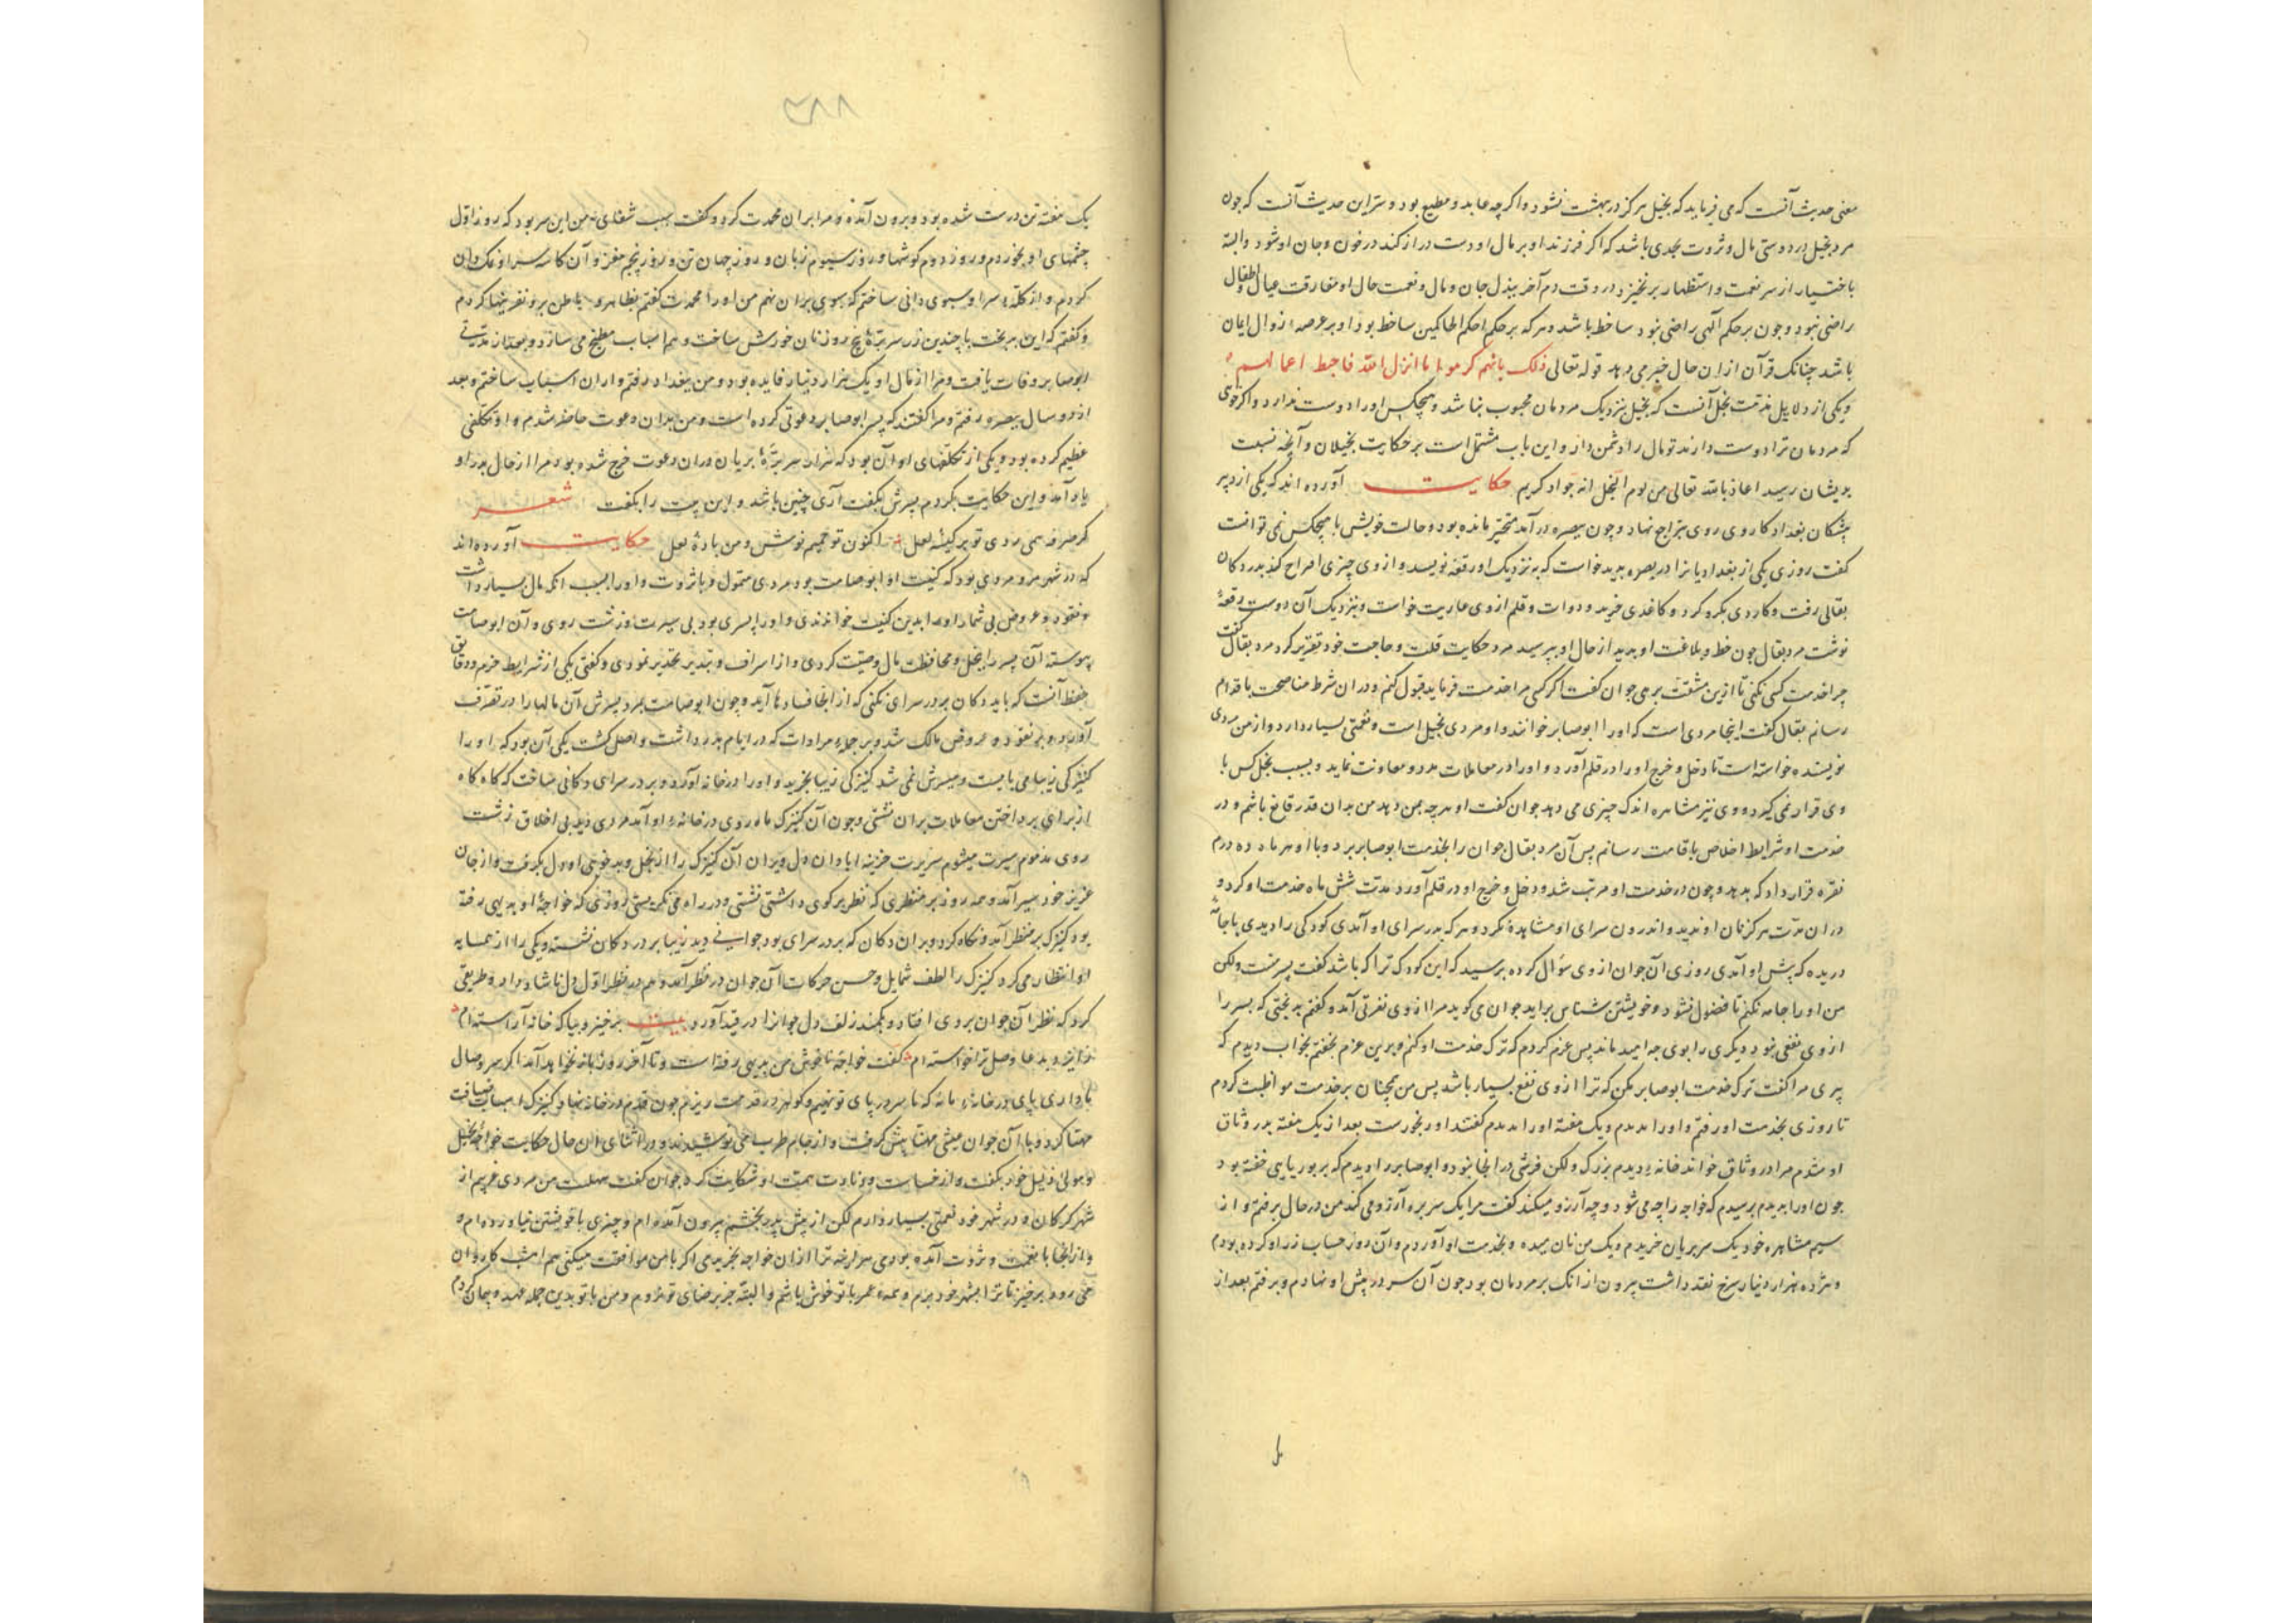 معنی حدیث آنست که می فرماید که بخیل هرکز در بهشت نشود و اکرچه عابد و مطیع بود و سر این حدیث آنست که چون
مرد بخیل در دوستی مال و ثروت بحدی باشد که اکر فرزند او بر مال او دست دراز کند در خون و جان او شود و البته
باختیار از سر نعمت و استظهار برنخیزد در وقت دم آخر ببذل جان و مال و نعمت حال او مفارقت عیال و اطفال
راضی نبود و چون بر حکم آلهی راضی نبود ساخط باشد و هرکه بر حکم احکم الحاکمین ساخط بود او بر عرصه زوال ایمان
باشد چنانک قرآن ازان حال خبر می دهد قوله تعالی ذلک بانهم کرهوا ما انزل الله فاحبط اعمالهم
و یکی از دلایل مذمت بخل آنست که بخیل نزدیک مردمان محبوب نباشد و هیچکس او را دوست ندارد و اکر خوی
که مردمان ترا دوست دارند تو مال را دشمن دار و این باب مشتمل است بر حکایت بخیلان و آنچه نسبت
بدیشان رسید اعاذنا الله تعالی من لوم البخل انه جواد کریم حکایت آورده اند که یکی از دبیر
پیشکان بغداد کار وی روی بتراجع نهاد و چون ببصره درآمد متحیر مانده بود و حالت خویش با هیچکس نمی توانست
کفت روزی یکی از بغدادیانرا در بصره بدید خواست که به نزدیک او رقعه نویسد و از وی چیزی اقتراح کند بدر دکان
بقالی رفت و کاردی بکرو کرد و کاغذی خرید و دوات و قلم از وی عاریت خواست و بنزدیک آن دوست رقعهٔ
نوشت مرد بقال چون خط و بلاغت او بدید از حال او بپرسید مرد حکایت قلت و حاجت خود تقریر کرد مرد بقال کفت
چرا خدمت کسی نکنی تا ازین مشقت برهی جوان کفت اکر کسی مرا خدمت فرماید قبول کنم و دران شرط مناصحت باقدام
رسانم بقال کفت اینجا مردی است که او را ابوصابر خوانند و او مردی بخیل است و نعمتی بسیار دارد و از من مردی
نویسنده خواسته است تا دخل و خرج او را در قلم آورد و او را در معاملات مدد و معاونت نماید و بسبب بخل کس با
وی قرار نمی کیرد و وی نیز مشاهره اندک چیزی می دهد جوان کفت او هرچه بمن دهد من بدان قدر قانع باشم و در
خدمت او شرایط اخلاص باقامت رسانم پس آن مرد بقال جوان را بخدمت ابوصابر برد و با او هر ماه ده درم
نقره قرار داد که بدهد و چون در خدمت او مرتب شد و دخل و خرج او در قلم آورد مدت شش ماه خدمت او کرد و
دران مدت هرکز نان او ندید و اندرون سرای او مشاهده نکرد و هرکه بدر سرای او آمدی کودکی را دیدی با جامهٔ
دریده که پیش او آمدی روزی آن جوان از وی سؤال کرد و پرسید که این کودک ترا که باشد کفت پسر منست ولکن
من او را جامه نکنم تا فضول نشود و خویشتن شناس براید جوان می کوید مرا از وی نفرتی آمد و کفتم بدبختی که پسر را
از وی نفعی نبود دیکری را بوی چه امید ماند پس عزم کردم که ترک خدمت او کنم و برین عزم بخفتم بخواب دیدم که
پیری مرا کفت ترک خدمت ابوصابر مکن که ترا از وی نفع بسیار باشد پس من همچنان بر خدمت مواظبت کردم
تا روزی بخدمت او رفتم و او را ندیدم و یک هفته او را ندیدم کفتند او رنجورست بعد از یک هفته بدر وثاق
او شدم مرا در وثاق خواند خانه دیدم بزرک ولکن فرشی در انجا نبود و ابوصابر را دیدم که بر بوریایی خفته بود
چون او را بدیدم پرسیدم که خواجه را چه می شود و چه آرزو میکند کفت مرا یک سر بره آرزو می کند من در حال برفتم و از
سیم مشاهره خود یک سر بریان خریدم و یک من نان میده و بخدمت او آوردم و آن روز حساب زر او کرده بودم
و هژده هزار دینار سرخ نقد داشت بیرون از انک بر مردمان بود چون آن سر در پیش او نهادم و برفتم بعد از
یک هفته تن درست شده بود و برون آمده و مرا بران محمدت کرد و کفت سبب شفای من این سر بود که روز اول
چشمهای او بخوردم و روز دوم کوشها و روز سیوم زبان و روز چهارم تن و روز پنجم مغز و آن کاسه سر او نمکدان
کردم و از کله سر او سبوی دانی ساختم که سبوی بران نهم من او را محمدت کفتم بظاهر و بباطن برو نفرینها کردم
و کفتم که این بدبخت با چندین زر سر برهٔ پنج روز نان خورش ساخت و هم اسباب مطبخ می سازد و بعد از مدتی
ابوصابر وفات یافت و مرا از مال او یک هزار دینار فایده بود و من ببغداد رفتم و ازان اسباب ساختم و بعد
از دو سال ببصره رفتم و مرا کفتند که پسر ابوصابر دعوتی کرده است و من بدان دعوت حاضر شدم و او تکلفی
عظیم کرده بود و یکی از تکلفهای او آن بود که هزار سر برهٔ بریان دران دعوت خرج شده بود مرا از حال پدر او
یاد آمد و این حکایت بکردم پسرش بکفت آری چنین باشد و این بیت را بکفت شعر
کر صرفه همی بردی تو بر کیسهٔ لعل اکنون تو حمیم نوش و من بادهٔ لعل حکایت آورده اند
که در شهر مرو مردی بود که کنیت او ابوصامت بود مردی متمول و با ثروت و او را بسبب انکه مال بسیار داشت
و نقود و عروض بی شمار او را بدین کنیت خواندندی و او را پسری بود بی سیرت و زشت روی و آن ابوصامت
پیوسته آن پسر را ببخل و محافظت مال وصیت کردی و از اسراف و تبذیر تحذیر نمودی و کفتی یکی از شرایط حزم و دقایق
حفظ آنست که باید دکان بر در سرای نکنی که از انجا فسادها آید و چون ابوصامت بمرد پسرش آن مالها را در تصرف
آورد و بر نقود و عروض مالک شد و بر جمله مرادات که در ایام پدر داشت واصل کشت یکی آن بود که او را
کنیزکی زیبا می بایست و میسرش نمی شد کنیزکی زیبا بخرید و او را در خانه آورد و بر در سرای دکانی ساخت که کاه کاه
از برای پرداختن معاملات بران نشستی و چون آن کنیزک ماه روی در خانه او آمد مردی دید بی اخلاق زشت
روی مذموم سیرت میشوم سریرت خزینه ابادان دل ویران آن کنیزک را از بخل و بدخویی او دل بکرفت و از جان
عزیز خود سیر آمد و همه روز بر منظری که نظر بر کوی داشتی نشستی و در راه می نکریستی روزی که خواجهٔ او بدیهی رفته
بود کنیزک بر منظر آمد و نکاه کرد و بران دکان که بر در سرای بود جوانی دید زیبا بر در دکان نشسته و یکی را از همسایه
او انتظار می کرد کنیزک را لطف شمایل و حسن حرکات آن جوان در نظر آمد و هم در نظر اول دل بباد داد و طریقی
کرد که نظر آن جوان بروی افتاد و بکمند زلف دل جوانرا در قید آورد بیت برخیز و بیا که خانه آراسته ام
وصل ترا خواسته ام کفت خواجه ناخوش من بدیهی رفته است و تا آخر روز باز نخواهد آمد اکر سر وصال
ما داری پای در خانه ما نه که ما سر در پای تو نهیم و کوهر در قدمت ریزم جوان قدم در خانه نهاد و کنیزک اسباب ضیافت
مهنا کرد و با آن جوان عیشی مهنا پیش کرفت و از جام طرب می نوشیدند و در اثنای ان حال حکایت خواجهٔ بخیل
و مولی ذلیل خود بکفت و از خساست و دناءت همت او شکایت کرد جوان کفت سهلست من مردی غریبم از
شهر کرکان و در شهر خود نعمتی بسیار دارم لکن از پیش پدر بخشم بیرون آمده ام و چیزی با خویشتن نیاورده ام و
واز انجا با نعمت و ثروت آمده بودمی هراینه ترا ازان خواجه بخریدمی اکر با من موافقت میکنی هم امشب کاروان
می رود برخیز تا ترا بشهر خود برم و همه عمر با تو خوش باشم و البته جز برضای تو نزوم و من با تو بدین جمله عهد و پیمان کردم